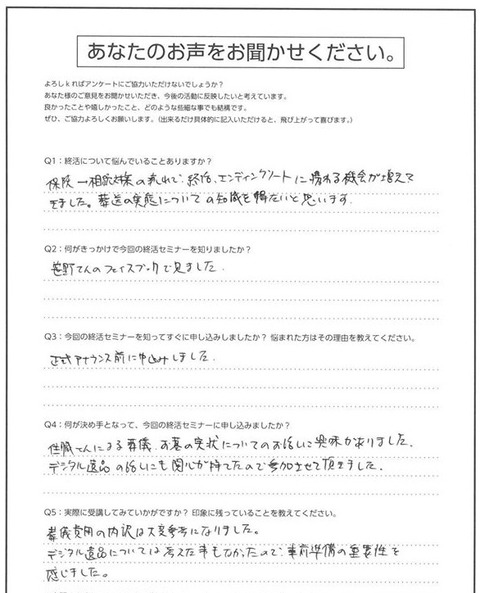 あなたのお声をお聞かせください。
よろしkればアンケートにご協力いただけないでしょうか？
あなた様のご意見をお聞かせいただき、今後の活動に反映したいと考えています。
良かったことや嬉しかったこと、どのような些細な事でも結構です。
ぜひ、ご協力よろしくお願いします。（出来るだけ具体的に記入いただけると、飛び上がって喜びます。）
Q1：終活について悩んでいることありますか？
保険→相続対策の流れで、終活、エンディングノートに触れる機会が増えて
きました。葬送の実態についての知識を得たいと思います。
Q2：何がきっかけで今回の終活セミナーを知りましたか？
さんのフェイスブックで見ました。
Q3：今回の終活セミナーを知ってすぐに申し込みしましたか？ 悩まれた方はその理由を教えてください。
正式アナウンス前に申込みしました。
Q4：何が決め手となって、今回の終活セミナーに申し込みましたか？
住職さんによる葬儀、お墓の実状についてのお話しに興味がありました。
デジタル遺品の話しにも関心が持てたので参加させて頂きました。
Q5：実際に受講してみていかがですか？ 印象に残っていることを教えてください。
葬儀費用の内訳は大変参考になりました。
デジタル遺品については考えた事もなかったので、事前準備の重要性を
感じました。